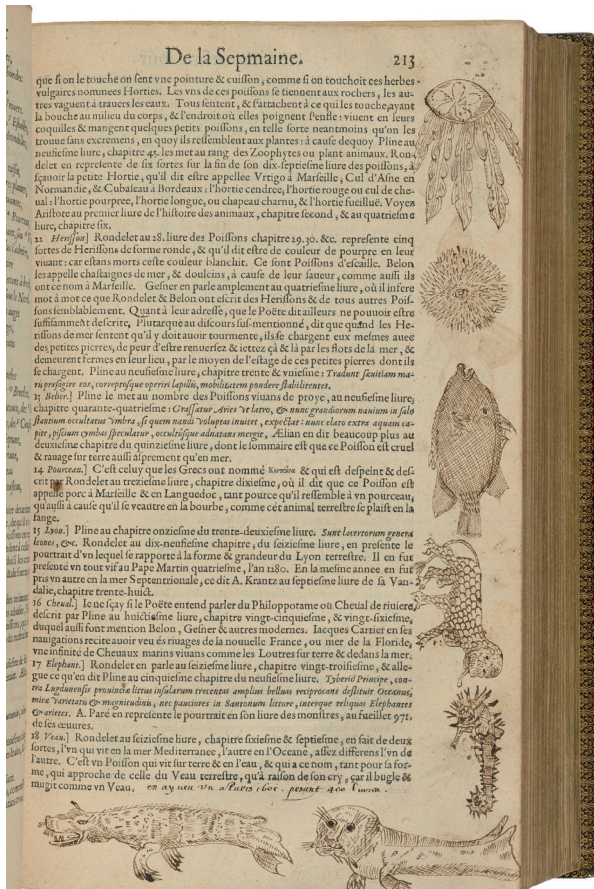 De la Sepmaine. 213
que si on le touche on sent vne pointure & cuisson, comme si on touchoit ces herbes
vulgaires nommees Horties. Les vns de ces poissons se tiennent aux rochers, les au-
tres vaguent à trauers les eaux. Tous sentent, & s'attachent à ce qui les touche, ayant
la bouche au milieu du corps, & l'endroit où elles poignent s'enfle: viuent en leurs
coquilles & mangent quelques petits poissons, en telle sorte neantmoins qu'on les
trouue sans excremens, en quoy ils ressemblent aux plantes: à cause dequoy Pline au
neufiesme liure, chapitre 45. les met au rang des Zoophytes ou plant-animaux. Ron-
delet en represente de six sortes sur la fin de son dix-septiesme liure des poissons, à
sçauoir la petite Hortie, qu'il dit estre appellee Vrtigo à Marseille; Cul d'Asne en
Normandie, & Cubaseau à Bordeaux: l'hortie cendree, l'hortie rouge ou cul de che-
ual: l'hortie pourpree, l'hortie longue, ou chapeau charnu, & l'hortie fueilluë. Voyez
Aristote au premier liure de l'histoire des animaux, chapitre second, & au quatriesme
liure, chapitre six.
12 Herisson] Rondelet au 18. liure des Poissons chapitre 29. 30. &c. represente cinq
sortes de Herissons de forme ronde, & qu'il dit estre de couleur de pourpre en leur
viuant: car estans morts ceste couleur blanchit. Ce sont Poissons d'escaille. Belon
les appelle chastaignes de mer, & doulcins, à cause de leur saueur, comme aussi ils
ont ce nom à Marseille. Gesner en parle amplement au quatriesme liure, où il infere
mot à mot ce que Rondelet & Belon ont escrit des Herissons & de tous autres Pois-
sons semblablement. Quant à leur adresse, que le Poëte dit ailleurs ne pouuoir estre
suffisamment descrite, Plutarque au discours sus-mentionné, dit que quand les He-
rissons de mer sentent qu'il y doit auoir tourmente, ils se chargent eux mesmes auec
des petites pierres, de peur d'estre renuersez & iettez çà & là par les flots de la mer, &
demeurent fermes en leur lieu, par le moyen de l'estage de ces petites pierres dont ils
se chargent. Pline au neufiesme liure, chapitre trente & vniesme: Tradunt sæuitiam ma-
ris præsagire eos, correptosque operiri lapillis, mobilitatem pondere stabilientes.
13 Belier.] Pline le met au nombre des Poissons viuans de proye, au neufiesme liure,
chapitre quarante-quatriesme: Grassatur Aries vt latro, & nunc grandiorum nauium in salo
stantium occultatus vmbra, si quem nandi voluptas inuitet, expectat: nunc elato extra aquam ca-
pite, piscium cymbas speculatur, occultúsque adnatans mergit, Ælian en dit beaucoup plus au
deuxiesme chapitre du quinziesme liure, dont le sommaire est que ce Poisson est cruel
& rauage sur terre aussi asprement qu'en mer.
14 Pourceau.] C'est celuy que les Grecs ont nommé & qui est despeint & des-
crit par Rondelet au treziesme liure, chapitre dixiesme, où il dit que ce Poisson est
appellé porc à Marseille & en Languedoc, tant pource qu'il ressemble à vn pourceau,
qu'aussi à cause qu'il se veautre en la bourbe, comme cét animal terrestre se plaist en la
fange.
15 Lyon.] Pline au chapitre onziesme du trente-deuxiesme liure. Sunt lacertorum genera
leones, &c. Rondelet au dix-neufiesme chapitre, du seiziesme liure, en presente le
pourtrait d'vn lequel se rapporte à la forme & grandeur du Lyon terrestre. Il en fut
presenté vn tout vif au Pape Martin quatriesme, l'an 1280. En la mesme annee en fut
pris vn autre en la mer Septentrionale, ce dit A. Krantz au septiesme liure de sa Van-
dalie, chapitre trente-huict.
16 Cheual.] Ie ne sçay si le Poëte entend parler du Philoppotame ou Cheual de riuiere,
descrit par Pline au huictiesme liure, chapitre vingt-cinquiesme, & vingt-sixiesme,
duquel aussi font mention Belon, Gesner & autres modernes. Iacques Cartier en ses
nauigations recite auoir veu és riuages de la nouuelle France, ou mer de la Floride,
vne infinité de Cheuaux marins viuans comme les Loutres sur terre & dedans la mer.
17 Elephant.] Rondelet en parle au seiziesme liure, chapitre vingt-troisiesme, & alle-
gue ce qu'en dit Pline au cinquiesme chapitre du neufiesme liure. Tyberio Principe, con-
tra Lugdunensis prouinciæ littus insularum trecentas amplius belluas reciprocans destituit Oceanus,
miræ varietatis & magnitudinis, nec pauciores in Santonum littore, interque reliquas Elephantes
& arietes. A. Paré en represente le pourtrait en son liure des monstres, au fueillet 971.
de ses œuures.
18 Veau.] Rondelet au seiziesme liure, chapitre sixiesme & septiesme, en fait de deux
sortes, l'vn qui vit en la mer Mediterrance, l'autre en l'Oceane, assez differens l'vn de
l'autre. C'est vn Poisson qui vit sur terre & en l'eau, & qui a ce nom, tant pour sa for-
me, qui approche de celle du Veau terrestre, qu'à raison de son cry, car il bugle &
mugit comme vn Veau, en ay veu vn a Paris pesant 400 liures.